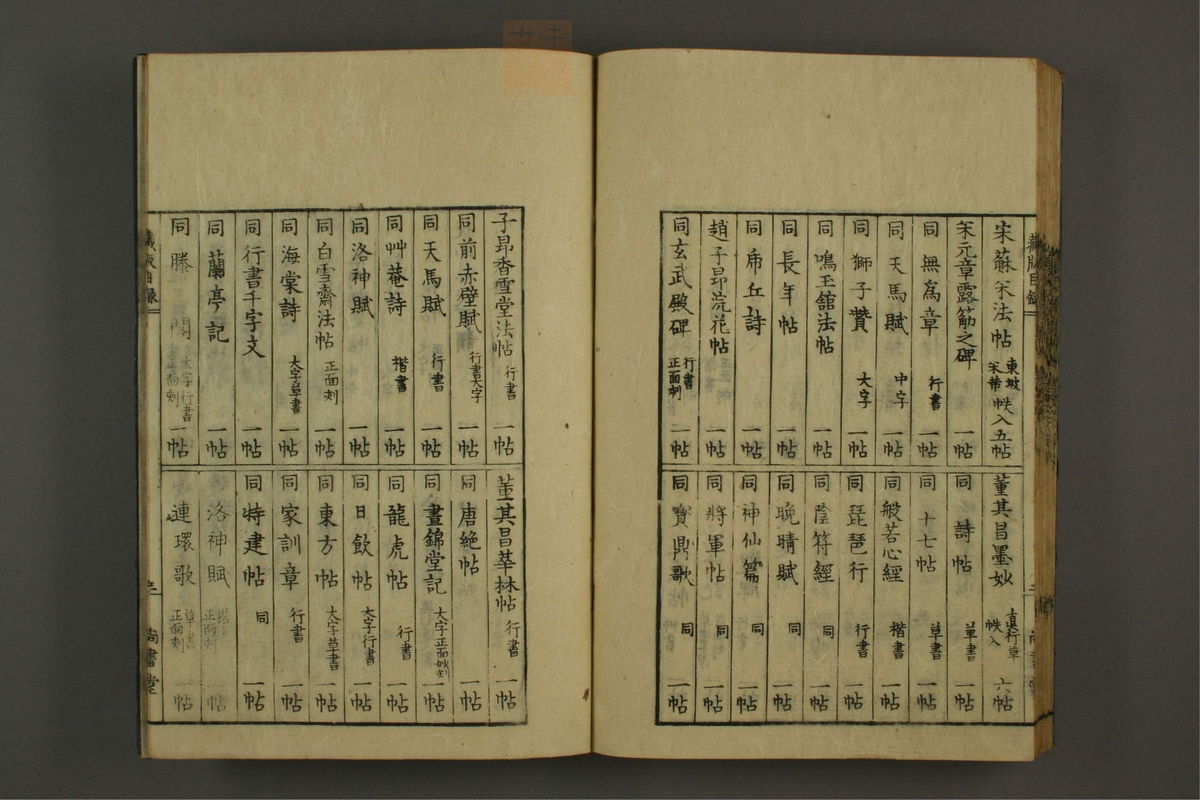 宋蘇米法帖 東坡米芾 帙入 五帖
米元章露筋之碑 一帖
同 無為章 行書 一帖
同 天馬賦 中字 一帖
同 獅子贊 大字 一帖
同 鳴玉舘法帖 一帖
同 長年帖 一帖
同 乕丘詩 一帖
趙子昂浣花帖 一帖
同 玄武殿碑 行書正面刻 一帖
董其昌墨妙 真行草帙入 六帖
同 詩帖 草書 一帖
同 十七帖 草書 一帖
同 般若心經 楷書 一帖
同 琵琶行 行書 一帖
同 陰符經 同 一帖
同 晩晴賦 同 一帖
同 神仙篇 同 一帖
同 將軍帖 同 一帖
同 寶鼎歌 同 一帖
子昂香雪堂法帖 行書 一帖
同 前赤壁賦 行書大字 一帖
同 天馬賦 行書 一帖
同 艸菴詩 楷書 一帖
同 洛神賦 一帖
同 白雪齋法帖 正面刻 一帖
同 海棠詩 大字草書 一帖
同 行書千字文 一帖
同 蘭亭記 一帖
同 滕閣 大字行書正面刻 一帖
董其昌莘林帖 行書 一帖
同 唐絶帖 一帖
同 晝錦堂記 大字正面妙刻 一帖
同 龍虎帖 行書 一帖
同 日飲帖 大字行書 一帖
同 東方帖 大字草書 一帖
同 家訓章 行書 一帖
同 特建帖 同 一帖
同 洛神賦 楷書正面刻 一帖
同 連環歌 草書正面刻 一帖
藏版目録
尚書堂